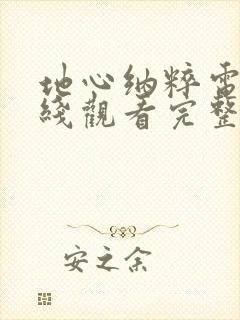 地心纳粹電
綫觀看完整
安之余